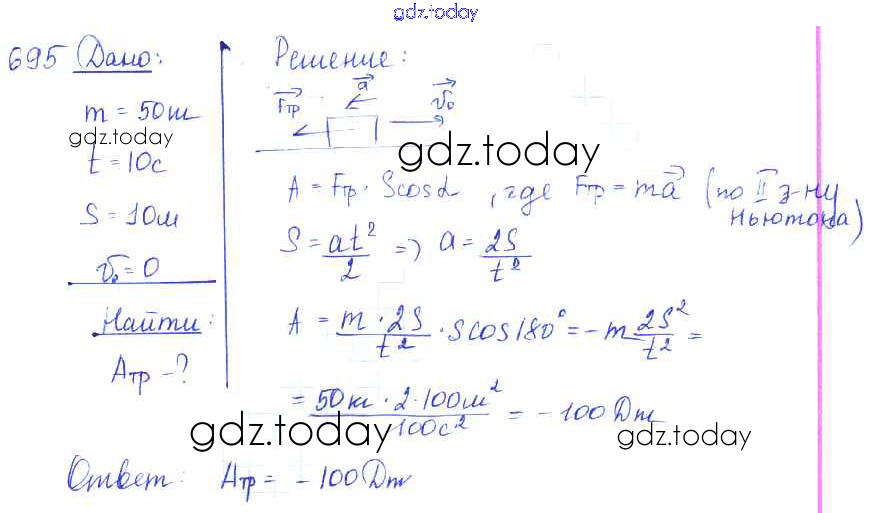 gdz.today
695 Дано:
m = 50 кг
gdz.today
t = 10с
S = 10м
v₀ = 0
Найти:
Aтр - ?
Решение:
Fтр a v₀
gdz.today
A = Fтр · S cosα, где Fтр = ma (по II з-ну Ньютона)
S = at²/2 => a = 2S/t²
A = m · 2S/t² · S cos180° = - m 2S²/t² =
= 50кг · 2 · 100м²/100с² = - 100 Дж
gdz.today
gdz.today
Ответ: Aтр = - 100 Дж